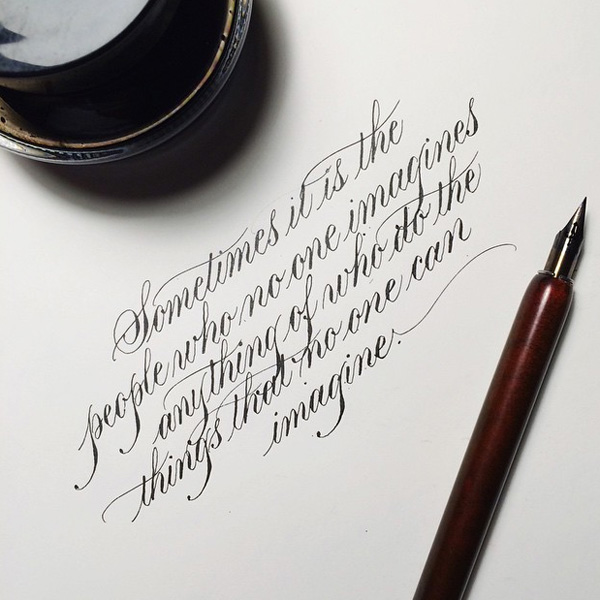 Sometimes it is the
people who no one imagines
anything of who do the
things that no one can
imagine.